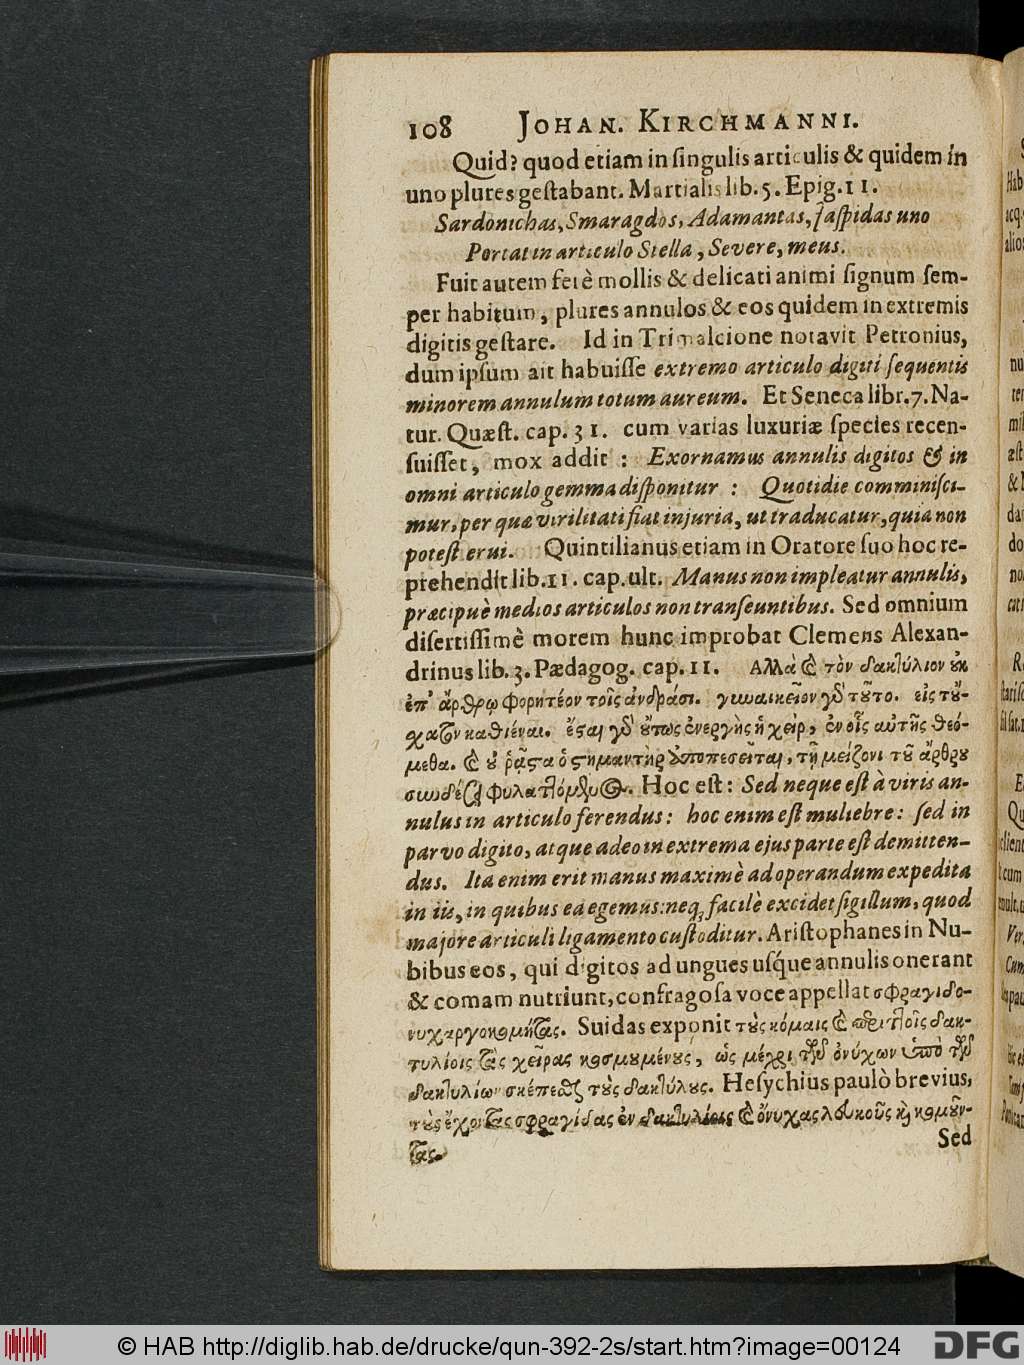 108 JOHAN. KIRCHMANNI.
Quid? quod etiam in ſingulis articulis & quidem in
uno plures geſtabant. Martialis lib. 5. Epig. 11.
Sardonichas, Smaragdos, Adamantas, Jaſpidas uno
Portat in articulo Stella, Severe, meus.
Fuit autem ferè mollis & delicati animi ſignum ſem-
per habitum, plures annulos & eos quidem in extremis
digitis geſtare. Id in Trimalcione notavit Petronius,
dum ipſum ait habuiſſe extremo articulo digiti ſequentis
minorem annulum totum aureum. Et Seneca libr. 7. Na-
tur. Quæſt. cap. 31. cum varias luxuriæ ſpecies recen-
ſuiſſet, mox addit : Exornamus annulis digitos & in
omni articulo gemma diſponitur : Quotidie comminiſci-
mur, per quæ virilitati fiat injuria, ut traducatur, quia non
poteſt erui. Quintilianus etiam in Oratore ſuo hoc re-
prehendit lib. 11. cap. ult. Manus non impleatur annulis,
præcipuè medios articulos non tranſeuntibus. Sed omnium
diſertiſſimè morem hunc improbat Clemens Alexan-
drinus lib. 3. Pædagog. cap. 11. Ἀλλὰ καὶ τὸν δακτύλιον οὐκ
ἐπ' ἄρθρῳ φορητέον τοῖς ἀνδράσι. γυναικεῖον γὰρ τοῦτο. εἰς τοὔ-
χατον καθιέναι. ἔσαι γὰρ οὕτως ἐνεργὴς ἡ χεὶρ, ἐν οἷς αὐτῆς δεό-
μεθα. καὶ οὐ ῥᾷστα ὁ σημαντὴρ ὑποπεσεῖται, τῇ μείζονι τοῦ ἄρθρου
συνδέσει φυλαττόμενος. Hoc eſt: Sed neque eſt à viris an-
nulus in articulo ferendus: hoc enim eſt muliebre: ſed in
parvo digito, atque adeo in extrema ejus parte eſt demitten-
dus. Ita enim erit manus maximè ad operandum expedita
in iis, in quibus eâ egemus: neq; facilè excidet ſigillum, quod
majore articuli ligamento cuſtoditur. Ariſtophanes in Nu-
bibus eos, qui digitos ad ungues uſque annulis onerant
& comam nutriunt, confragoſa voce appellat σφραγιδο-
νυχαργοκομήτας. Suidas exponit τοὺς κόμαις καὶ περιττοῖς δακ-
τυλίοις τὰς χεῖρας κοσμουμένους, ὡς μέχρι τῶν ὀνύχων ὑπὸ τῶν
δακτυλίων σκέπεσθαι τοὺς δακτύλους. Heſychius paulò brevius,
τοὺς ἔχοντας σφραγίδας ἐν δακτυλίοις καὶ ὄνυχας λευκοῦς καὶ κομῶν-
τας.
Sed
© HAB http://diglib.hab.de/drucke/qun-392-2s/start.htm?image=00124
DFG